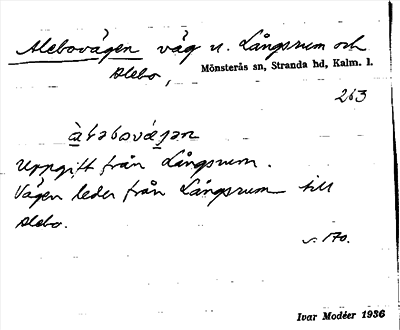 Alebovägen väg n. Långsrum och
Alebo, Mönsterås sn, Stranda hd, Kalm. l.
263
Uppgift från Långsrum.
Vägen leder från Långsrum till
Alebo.
s. 170.
Ivar Modéer 1936